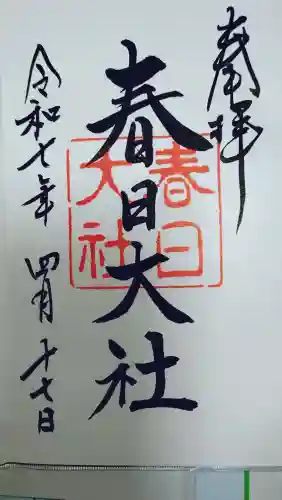 奉拝
春日大社
春日
大社
令和七年 四月 十七日